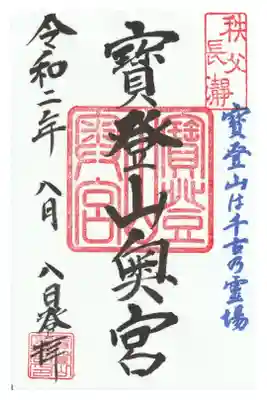 秩父
長瀞
寳登山は千古乃霊場
寳登山奥宮
寳登山
奥宮
令和二年 八月 八日登拝